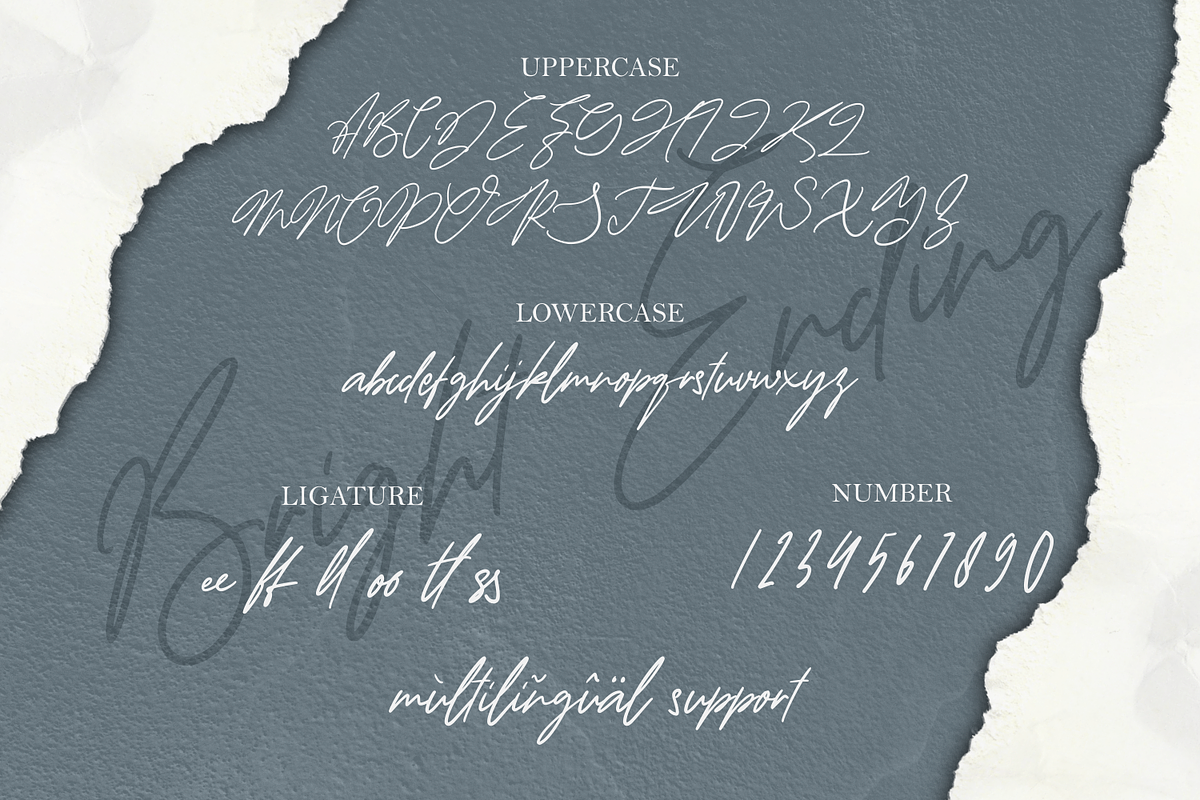 UPPERCASE
ABCDEFGHIJKL
MNOPQRSTUVWSXYZ
LOWERCASE
abcdefghijklmnopqrstuvwxyz
Bright Ending
LIGATURE
NUMBER
ee ff ll oo tt ss
1234567890
mùltiliñgûäl support